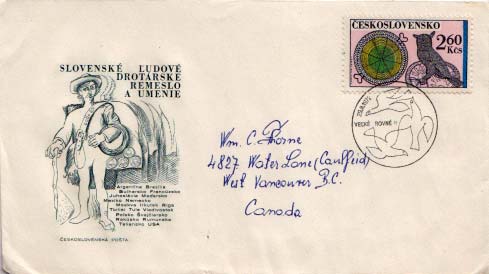 ČESKOSLOVENSKO
2,60
Kčs
SLOVENSKÉ ĽUDOVÉ
DROTÁRSKE
REMESLO
A UMENIE
VEĽKÉ ROVNÉ
Wm. C. Thorne
4827 Water Lane (Caulfeild)
West Vancouver B.C.
Canada
Argentína Brazília
Bulharsko Francúzsko
Juhoslávia Maďarsko
Mexiko Nemecko
Moskva Irkutsk Riga
Tula Vladivostok
Poľsko Švajčiarsko
Rakúsko Rumunsko
Taliansko USA
ČESKOSLOVENSKÁ POŠTA